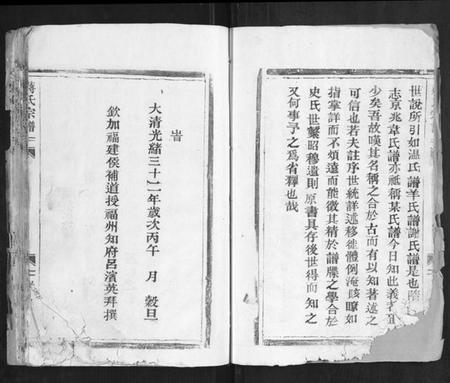 世說所引如温氏譜羊氏譜謝氏譜是也
志京兆韋氏譜亦祗稱某氏譜今日知此義者
少矣吾故嘆其名稱之合於古而有以知著述之
可信也若夫註序世統詳述移徙體例淹賅瞭如
指掌詳而不煩遠而能徵其精於譜牒之學合於
史氏世繫昭穆遺則原書具存後世得而知之
又何事予之為省釋也哉
時
大清光緒三十二年歲次丙午 月 穀旦
欽加福建侯補道授福州知府呂濱英拜撰
蔣氏宗譜